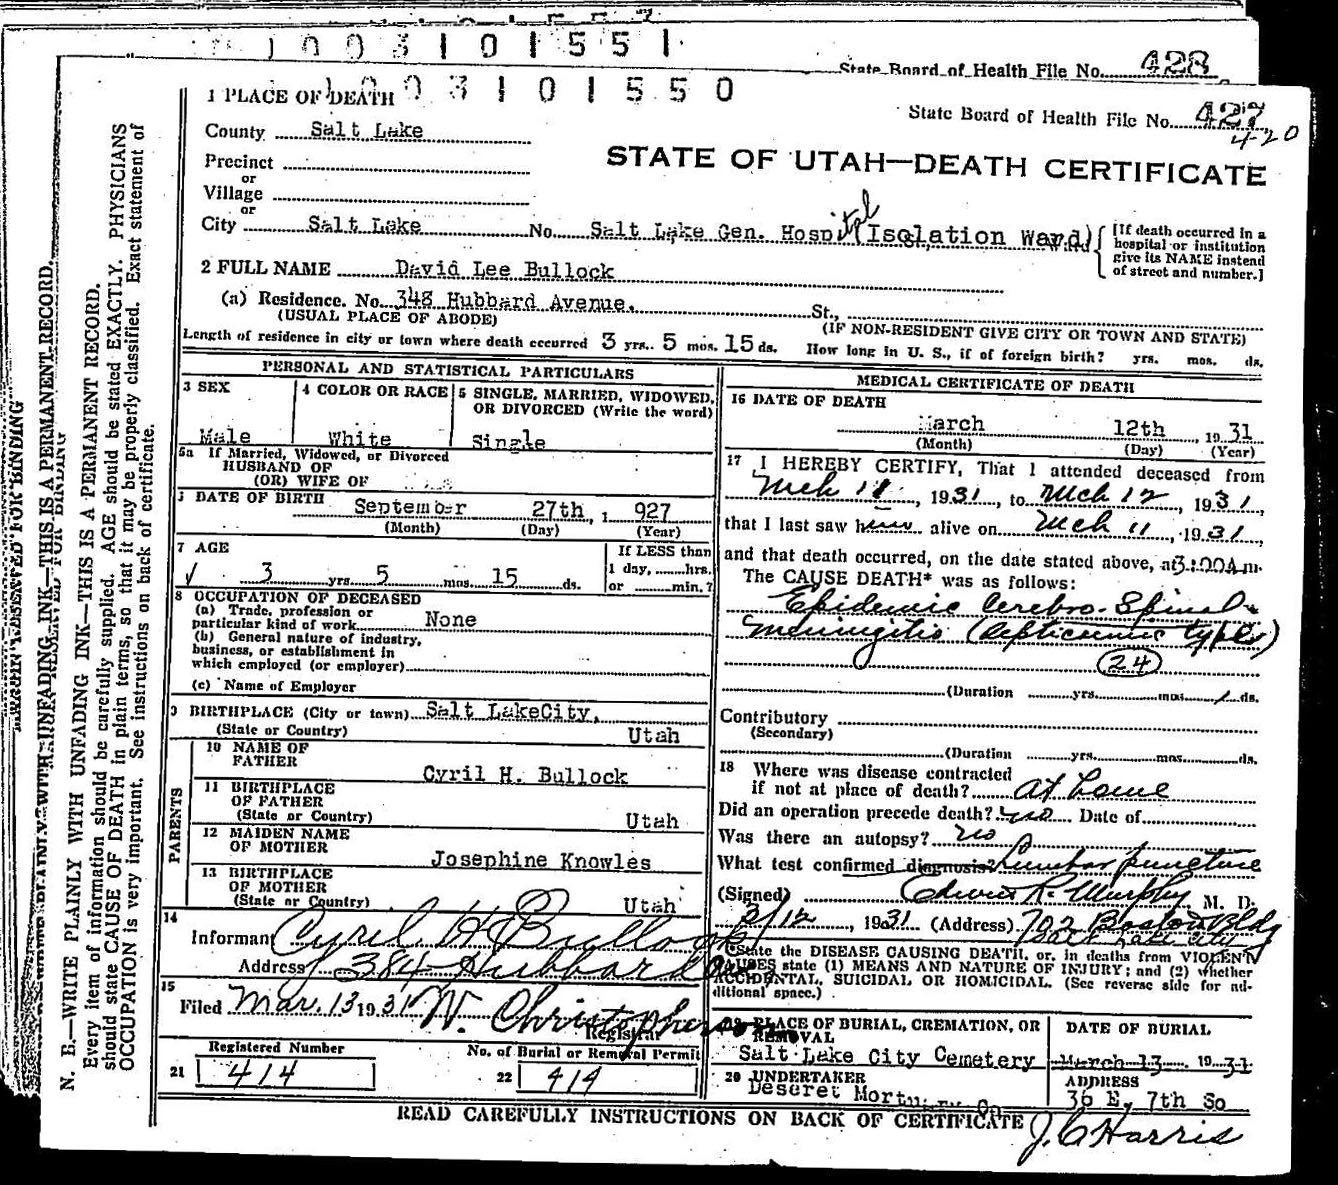 1003101551
State Board of Health File No. 428
1003101550
1 PLACE OF DEATH
State Board of Health File No. 427
420
County Salt Lake
STATE OF UTAH—DEATH CERTIFICATE
Precinct
or
Village
or
City Salt Lake No. Salt Lake Gen. Hospital (Isolation Ward)
[If death occurred in a
hospital or institution
give its NAME instead
of street and number.]
2 FULL NAME David Lee Bullock
(a) Residence. No. 348 Hubbard Avenue. St.,
(USUAL PLACE OF ABODE) (IF NON-RESIDENT GIVE CITY OR TOWN AND STATE)
Length of residence in city or town where death occurred 3 yrs. 5 mos. 15 ds. How long in U. S., if of foreign birth? yrs. mos. ds.
PERSONAL AND STATISTICAL PARTICULARS
3 SEX
Male
4 COLOR OR RACE
White
5 SINGLE, MARRIED, WIDOWED,
OR DIVORCED (Write the word)
Single
5a If Married, Widowed, or Divorced
HUSBAND OF
(OR) WIFE OF
DATE OF BIRTH September 27th, 1 927
(Month) (Day) (Year)
7 AGE
3 yrs. 5 mos. 15 ds.
If LESS than
1 day, hrs.
or min.?
8 OCCUPATION OF DECEASED
(a) Trade, profession or
particular kind of work None
(b) General nature of industry,
business, or establishment in
which employed (or employer)
(c) Name of Employer
9 BIRTHPLACE (City or town) Salt LakeCity,
(State or Country) Utah
PARENTS
10 NAME OF
FATHER Cyril H. Bullock
11 BIRTHPLACE
OF FATHER
(State or Country) Utah
12 MAIDEN NAME
OF MOTHER Josephine Knowles
13 BIRTHPLACE
OF MOTHER
(State or Country) Utah
14
Informant Cyril H Bullock
Address 384 Hubbard
15
Filed Mar. 13 1931 W. Christopherson
Registrar
Registered Number
21 414
No. of Burial or Removal Permit
22 414
MEDICAL CERTIFICATE OF DEATH
16 DATE OF DEATH
March 12th, 1931
(Month) (Day) (Year)
17 I HEREBY CERTIFY, That I attended deceased from
Mch 11, 1931, to Mch 12, 1931,
that I last saw him alive on Mch 11, 1931,
and that death occurred, on the date stated above, at 3:00 A m.
The CAUSE DEATH* was as follows:
Epidemic Cerebro-Spinal
Meningitis (Septicemic type)
24
(Duration yrs. mos. 1 ds.
Contributory
(Secondary)
(Duration yrs. mos. ds.
18 Where was disease contracted
if not at place of death? At home
Did an operation precede death? no Date of
Was there an autopsy? no
What test confirmed diagnosis? Lumbar puncture
(Signed) Edwin R. Murphy M. D.
3/12, 1931 (Address) 702 Boston Bldg
Salt Lake City
*State the DISEASE CAUSING DEATH, or, in deaths from VIOLENT
CAUSES state (1) MEANS AND NATURE OF INJURY; and (2) whether
ACCIDENTAL, SUICIDAL OR HOMICIDAL. (See reverse side for ad-
ditional space.)
PLACE OF BURIAL, CREMATION, OR
REMOVAL
Salt Lake City Cemetery
DATE OF BURIAL
March 13 1931
20 UNDERTAKER
Deseret Mortuary Co
ADDRESS
36 E. 7th So
READ CAREFULLY INSTRUCTIONS ON BACK OF CERTIFICATE
J. C Harris
N. B.—WRITE PLAINLY WITH UNFADING INK—THIS IS A PERMANENT RECORD.
Every item of information should be carefully supplied. AGE should be stated EXACTLY. PHYSICIANS
should state CAUSE OF DEATH in plain terms, so that it may be properly classified. Exact statement of
OCCUPATION is very important. See instructions on back of certificate.
MARGIN RESERVED FOR BINDING